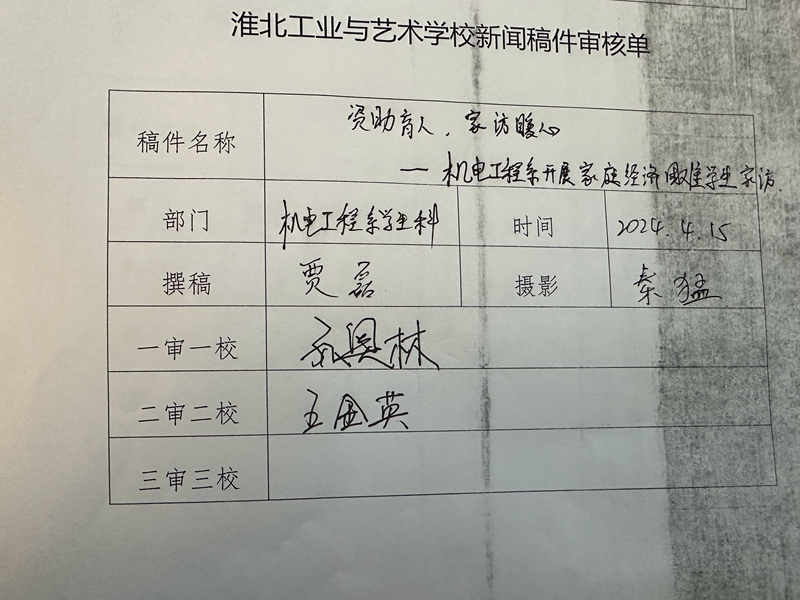 淮北工业与艺术学校新闻稿件审核单
稿件名称
资助育人，家访暖心
——机电工程系开展家庭经济困难学生家访
部门 机电工程系学生科 时间 2024.4.15
撰稿 贾磊 摄影 秦猛
一审一校
二审二校 王金英
三审三校